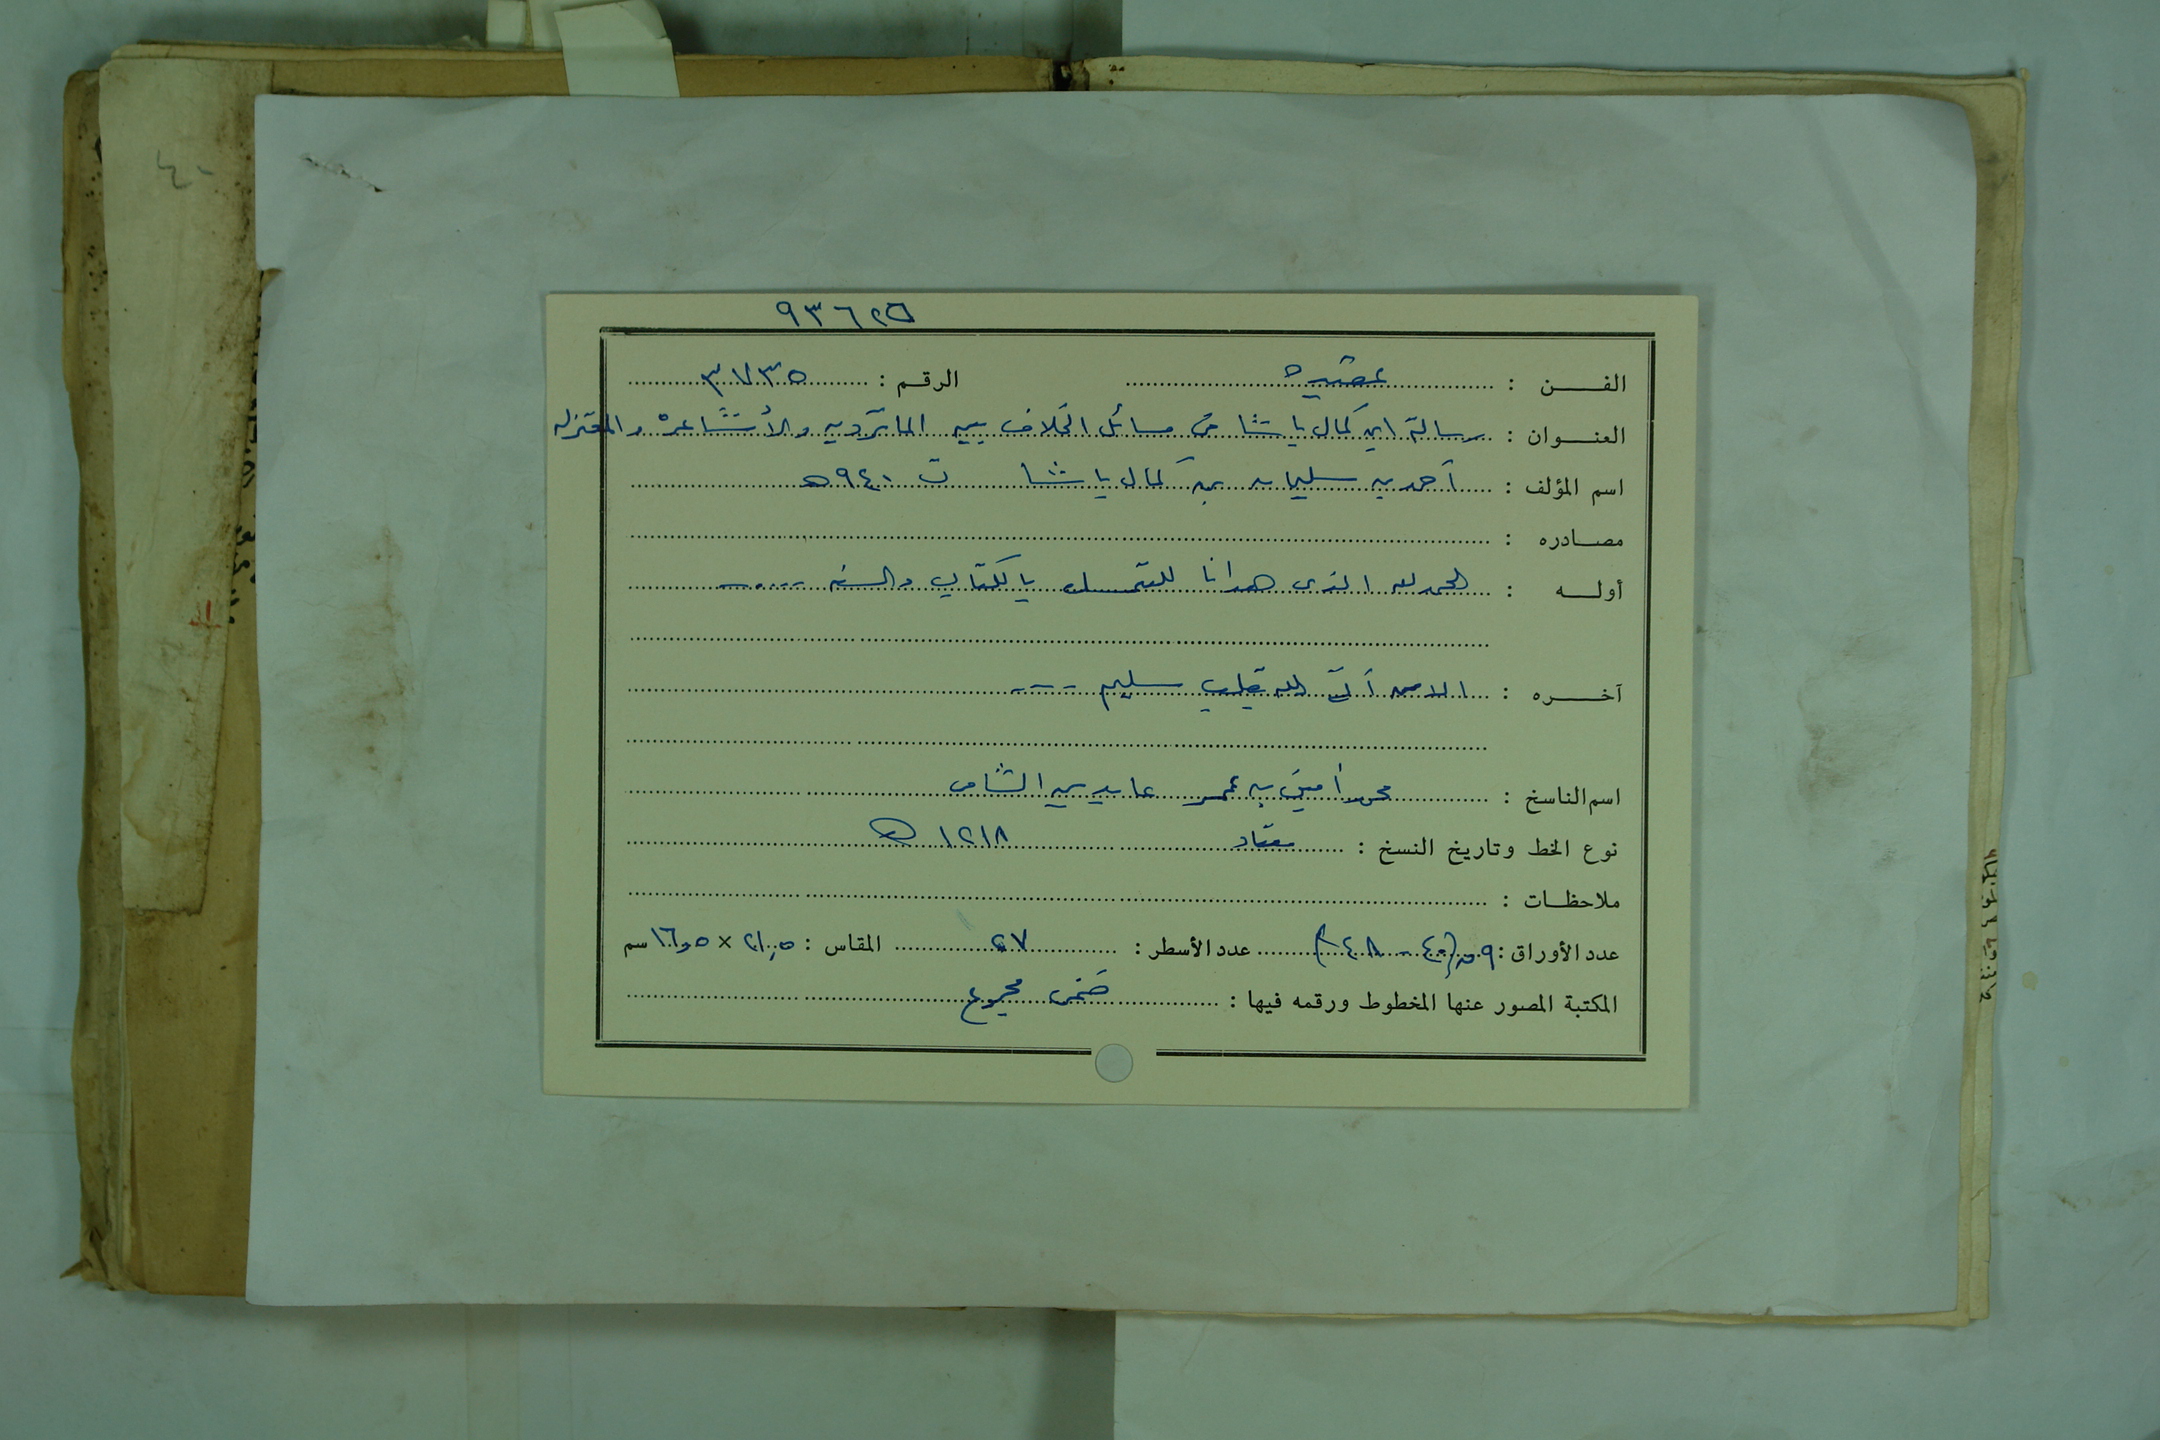 ٩٣٦٢٥
الفن : عقيدة الرقم : ٣٧٣٥
العنوان : رسالة ابن كمال باشا في مسائل الخلاف بين الماتريديه والأشاعره والمعتزله
اسم المؤلف : أحمد بن سليمان بن كمال باشا ت ٩٤٠هـ
مصادره :
أوله : الحمد لله الذى هدانا للتمسك بالكتاب والسنه ....
آخره : الا من أتى الله بقلب سليم ---
اسم الناسخ : محمد أمين بن عمر عابدين الشامى
نوع الخط وتاريخ النسخ : معتاد ١٢١٨ هـ
ملاحظات :
عدد الأوراق : ٩ ق (٤٠ - ٤٨) عدد الأسطر : ٢٧ المقاس : ٢١,٥ × ١٦,٥ سم
المكتبة المصور عنها المخطوط ورقمه فيها : ضمن مجموع
٤٠